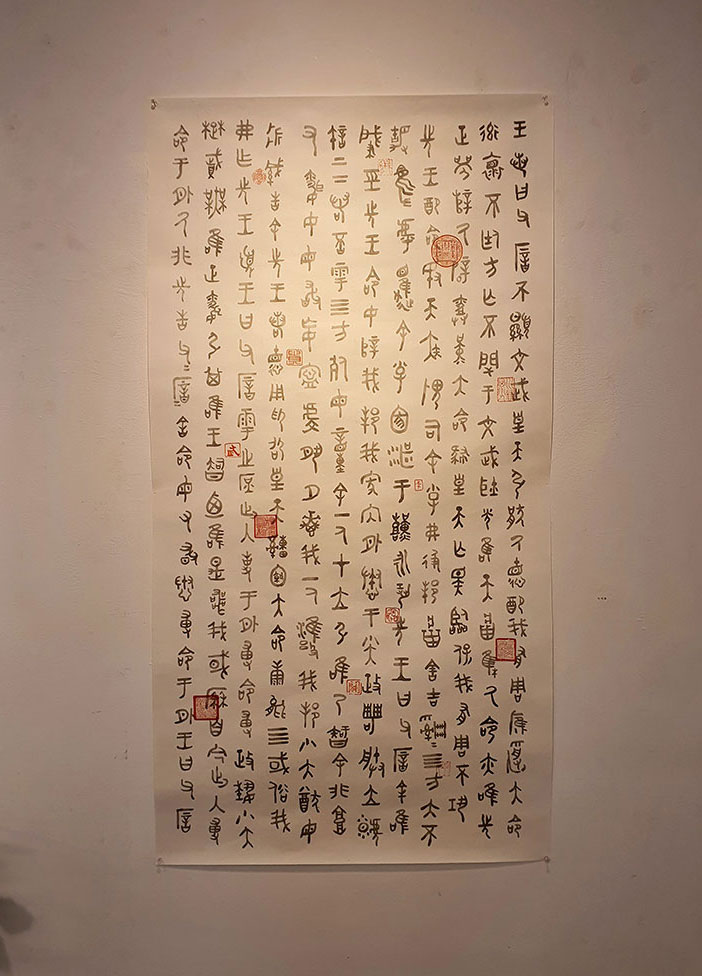 王若曰父厝不顯文武皇天引厭厥德配我有周膺受大命
率懷不廷方亡不閈于文武耿光唯天將集厥命亦唯先
正襄辥厥辟勞堇大命肆皇天亡斁臨保我有周不鞏
先王配命敃天疾畏司余小子弗彶邦將曷吉四方大不
靜烏虖趯余小子圂湛于艱永鞏先王王曰父厝今余唯
肇巠先王命命女辥我邦我家內外惷于小大政粵朕立虩
許上下若否雩四方死毋動余一人在立引唯乃智余非庸
又昏女毋敢妄寧虔夙夕惠我一人雍我邦小大猷毋
折緘告余先王若德用仰昭皇天申恪大命康能四或俗我
弗作先王憂王曰父厝雩之庶出入事于外尃命尃政藝小大
楚賦無唯正昏引其唯王智廼唯是喪我或歷自今出入尃
命于外厥非先告父厝父厝舍命毋有敢惷尃命于外王曰父厝